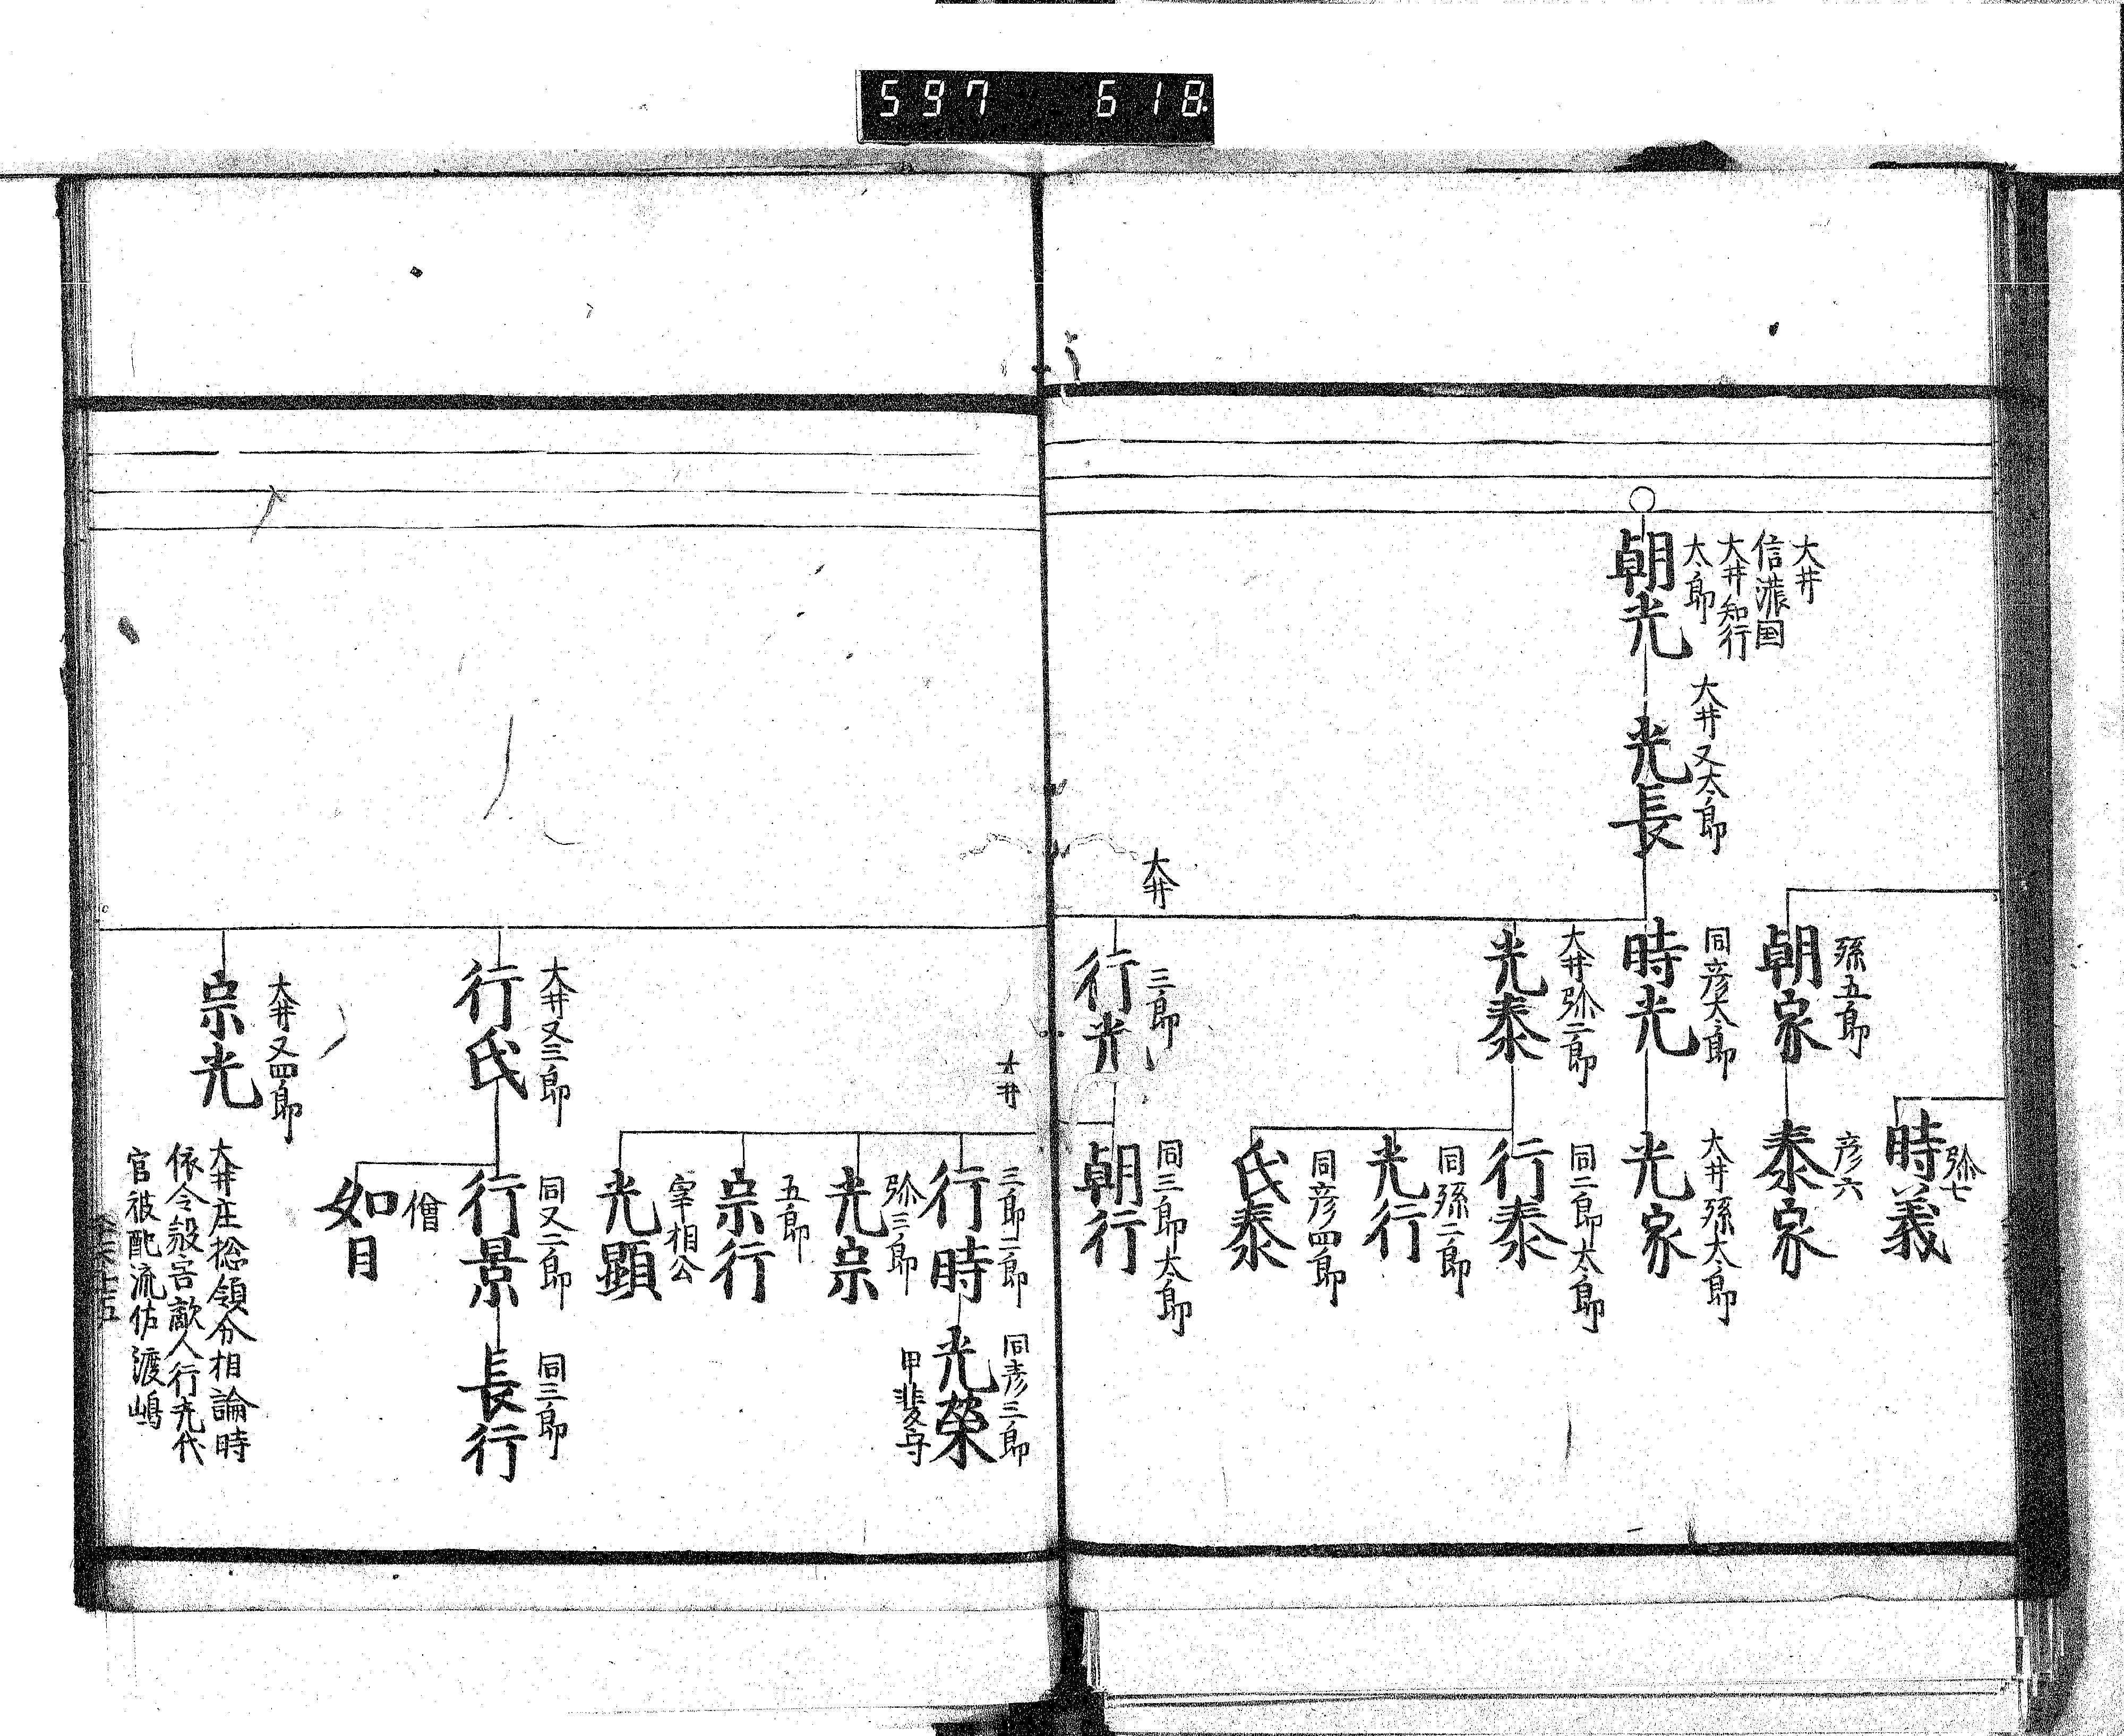 597 618
大井
信濃国
大井知行
太郎
朝光
大井又太郎
光長
孫五郎
朝家
弥七
時義
彦六
泰家
同彦太郎
時光
大井孫太郎
光家
大井弥二郎
光泰
同二郎太郎
行泰
同孫二郎
光行
同彦四郎
氏泰
大井
三郎
行光
同三郎太郎
朝行
大井
三郎二郎
行時
同彦三郎
光榮
甲斐守
弥三郎
光宗
五郎
宗行
宰相公
光顕
大井又三郎
行氏
同又二郎
行景
同三郎
長行
僧
如月
大井又四郎
宗光
大井庄捴領分相論時
依令殺害敵人行光代
官被配流佐渡嶋